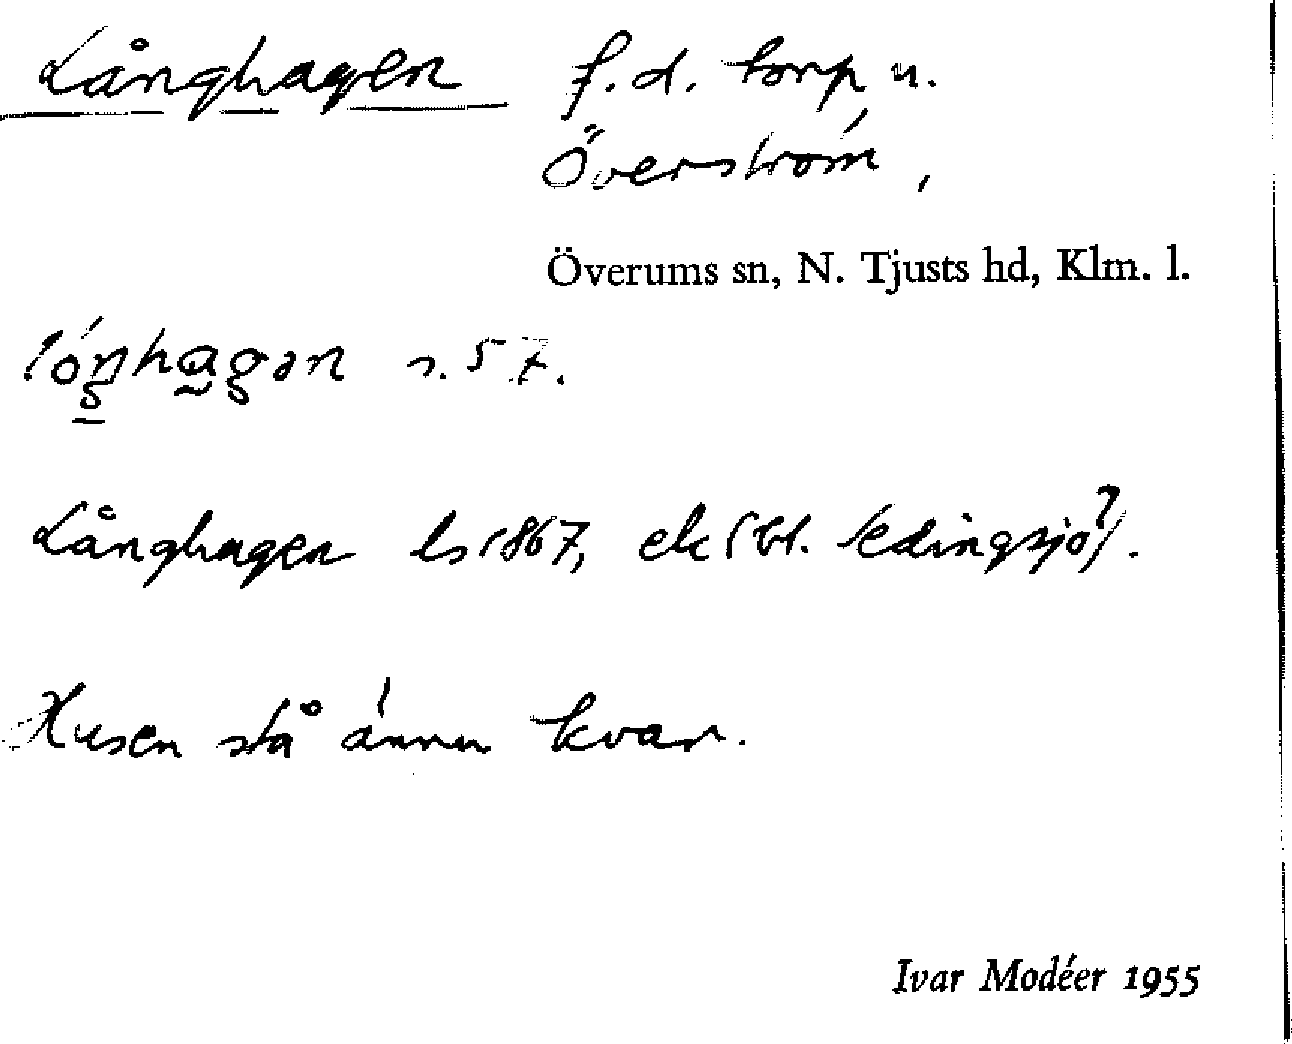 Långhagen f.d. torp u.
Överström,
Överums sn, N. Tjusts hd, Klm. l.
s. 57.
Långhagen ls 1867, ek (bl. Kedingsjö?).
Husen stå ännu kvar.
Ivar Modéer 1955